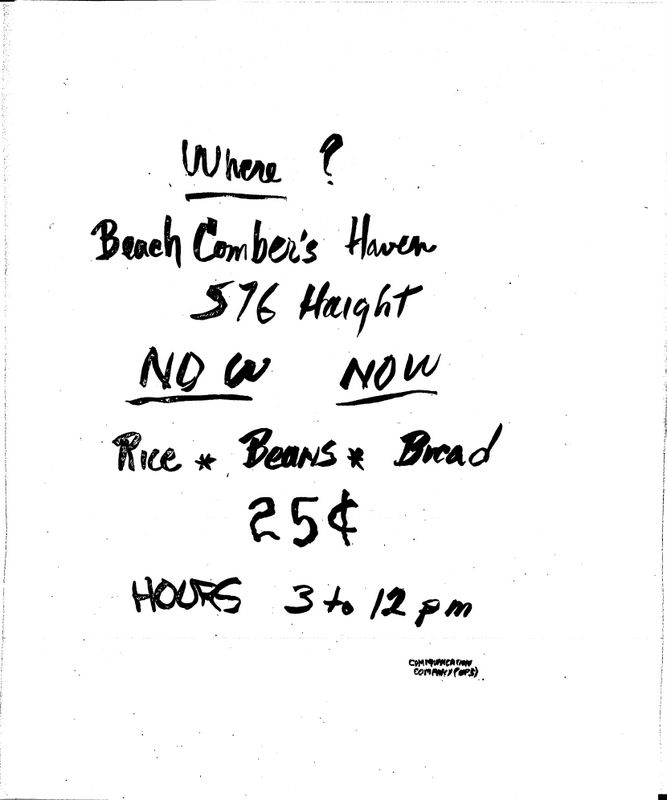 Where ?
Beach Comber's Haven
576 Haight
NOW NOW
Rice * Beans * Bread
25¢
HOURS 3 to 12 pm
COMMUNICATION
COMPANY (UPS)